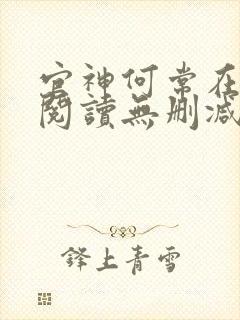 官神何常在
閱讀無刪減
鋒上青雪